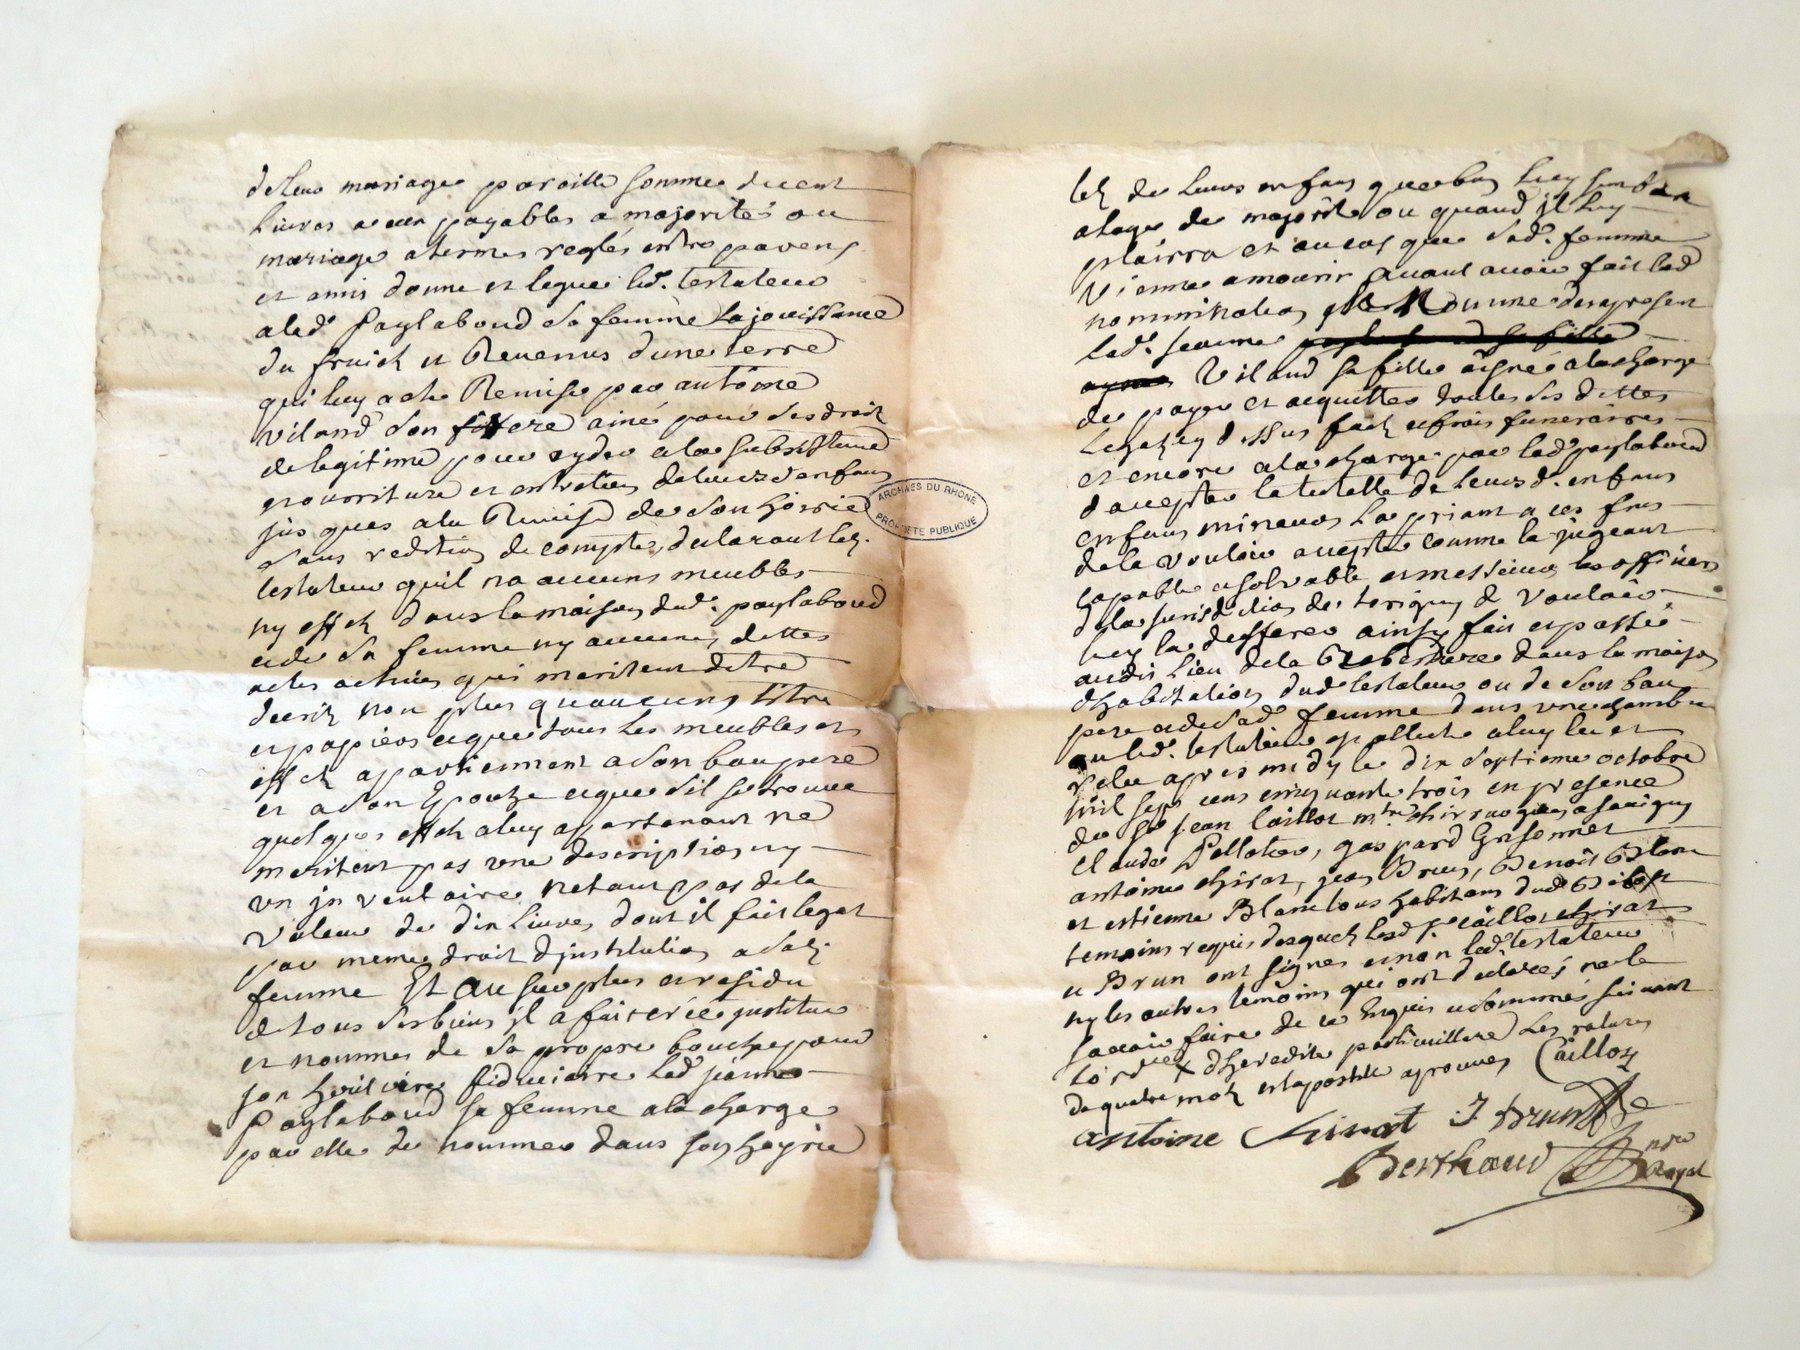 de leur mariage pareille somme de cent
livres aussy payables a majorité ou
mariage a termes reglés entre parens
et amis donne et legue led. testateur
a lad. Paylaboud sa femme la jouissance
du fruich et Revenus d'une terre
qui luy a ete Remise par antoine
viland son frere ainé pour ses droit
de legitime pour ayder a la subsistance
nourriture et entretien de leursd enfans
jusques a la Remise de son hoirie
sans redition de compte, declarant led.
testateur quil na aucuns meubles
ny effeh dans la maison dud. paylaboud
et de sa femme ny aucunes dettes
actes actives qui meritent detre
decrit non plus qu'aucuns titre
et papiers et que tous les meubles et
effeh appartiennent a son beaupere
et a son Epouze et que s'il se trouve
quelques effeh a luy appartenant ne
meritent pas une description ny
un jnventaire netant pas de la
valeur de dix livres dont il fait legat
par meme droit d'jnstitution a sad.
femme Et Au surplus et residu
de tous ses biens jl a fait créé jnstitue
et nommé de sa propre bouche pour
son heritiere fiduciaire lad jeanne
Paylaboud sa femme a la charge
par elle de nommer dans son hoyrie
tel de leurs enfans que bon luy semblera
a lage de majorite ou quand jl luy
plairra et au cas que sad. femme
vienne a mourir avant avoir fait lad
nomination Nomme des apresen
lad. jeanne
Viland sa fille aisnée a la charge
de payer et acquitter toutes ses dettes
Legah cy dessus faih et frais funeraires
et encore a la charge par lad paylaboud
d'accepter la tutelle de leursd. enfans
enfans mineurs la priant a ces fins
de la vouloir accepter comme la jugeant
capable et solvable et messieurs les officiers
de la jurisdiction de savigny de vouloir
luy la defferer ainsy fait et passé
audit lieu de la dans la maison
d'habitation dud testateur ou de son beau
pere et de sad femme dans une chambre
ou led. testateur est allecté a luy lu et
relu apres midy le dix septieme octobre
mil sept cens cinquante trois en presence
de Sr jean Caillot mtre chirurgien a savigny
Claude Pellotier, gaspard Grisonnet
antoine chirat, jean Brun, Benoit Blanc
et estienne Blanc tous habitans dud
temoins requis desqueh lesd Sr caillot chirat
et Brun ont signés et non led. testateur
ny les autres temoins qui ont declarés ne le
savoir faire de ce Enquis et sommés suivant
lordce x d'heredite particulliere les ratures
de quatre moh et lapostille aprouvés Caillot
antoine Chirat J Brun
Berthaud nre Royal
ARCHIVES DU RHONE
PROPRIETE PUBLIQUE